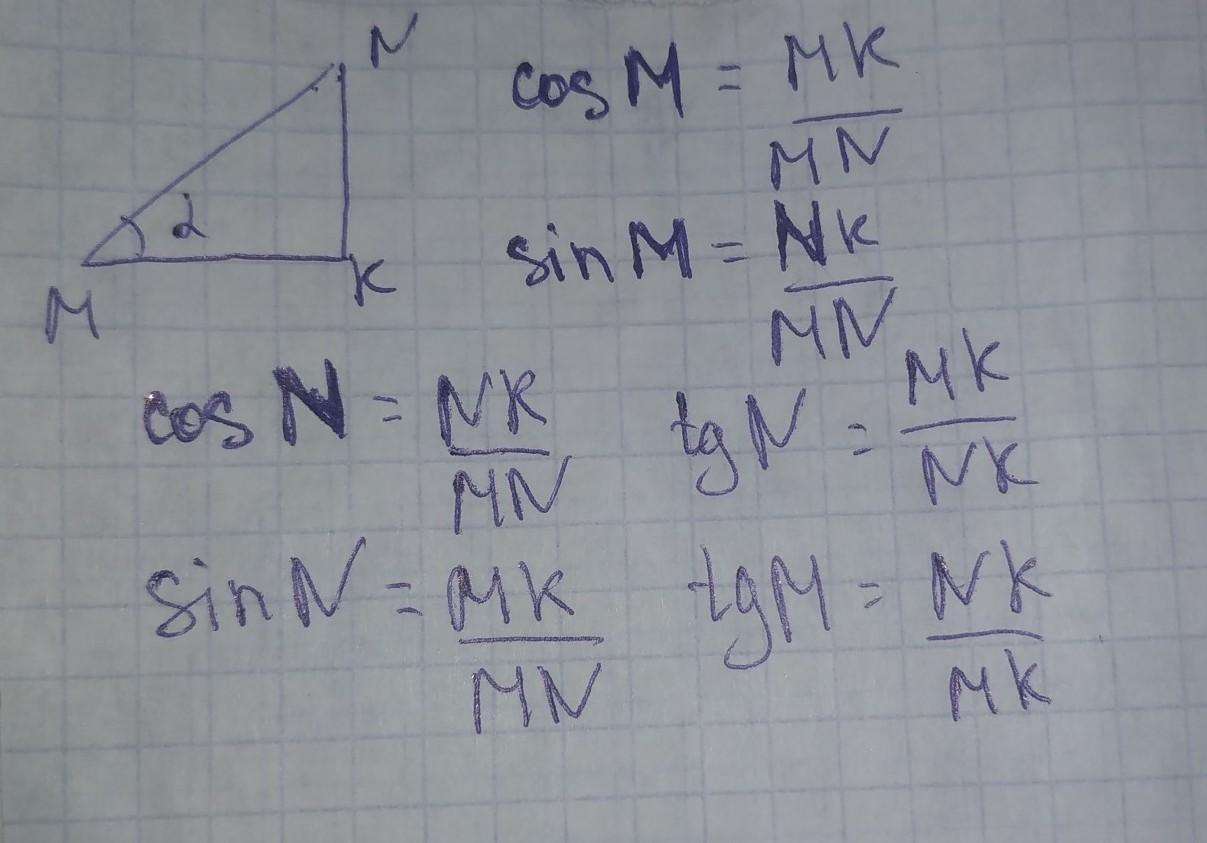 N
cos M = MK / MN
α
M
K
sin M = NK / MN
cos N = NK / MN
tg N = MK / NK
sin N = MK / MN
tg M = NK / MK